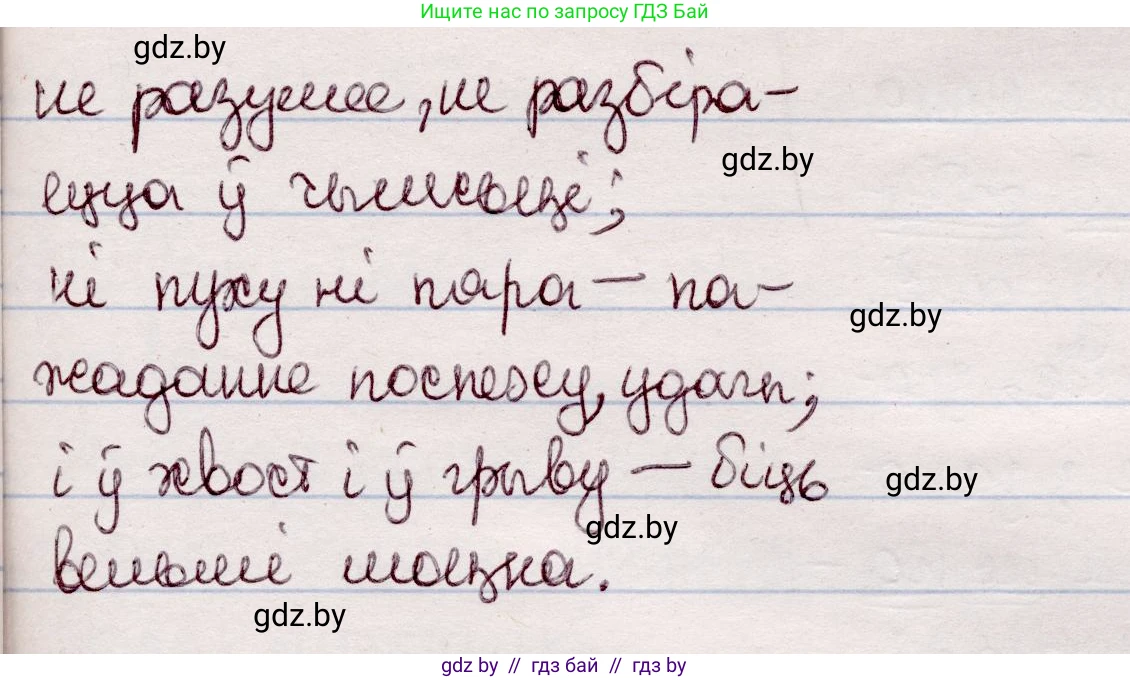 Ищите нас по запросу ГДЗ Бай
gdz.by
не разумее, не разбіра-
gdz.by
ецца ў чымсьці;
ні пуху ні пяра — па-
gdz.by
жаданне поспеху, удачы;
і ў хвост і ў грыву — біць
gdz.by
gdz.by
вельмі моцна.
gdz.by
gdz by // гдз бай // гдз by